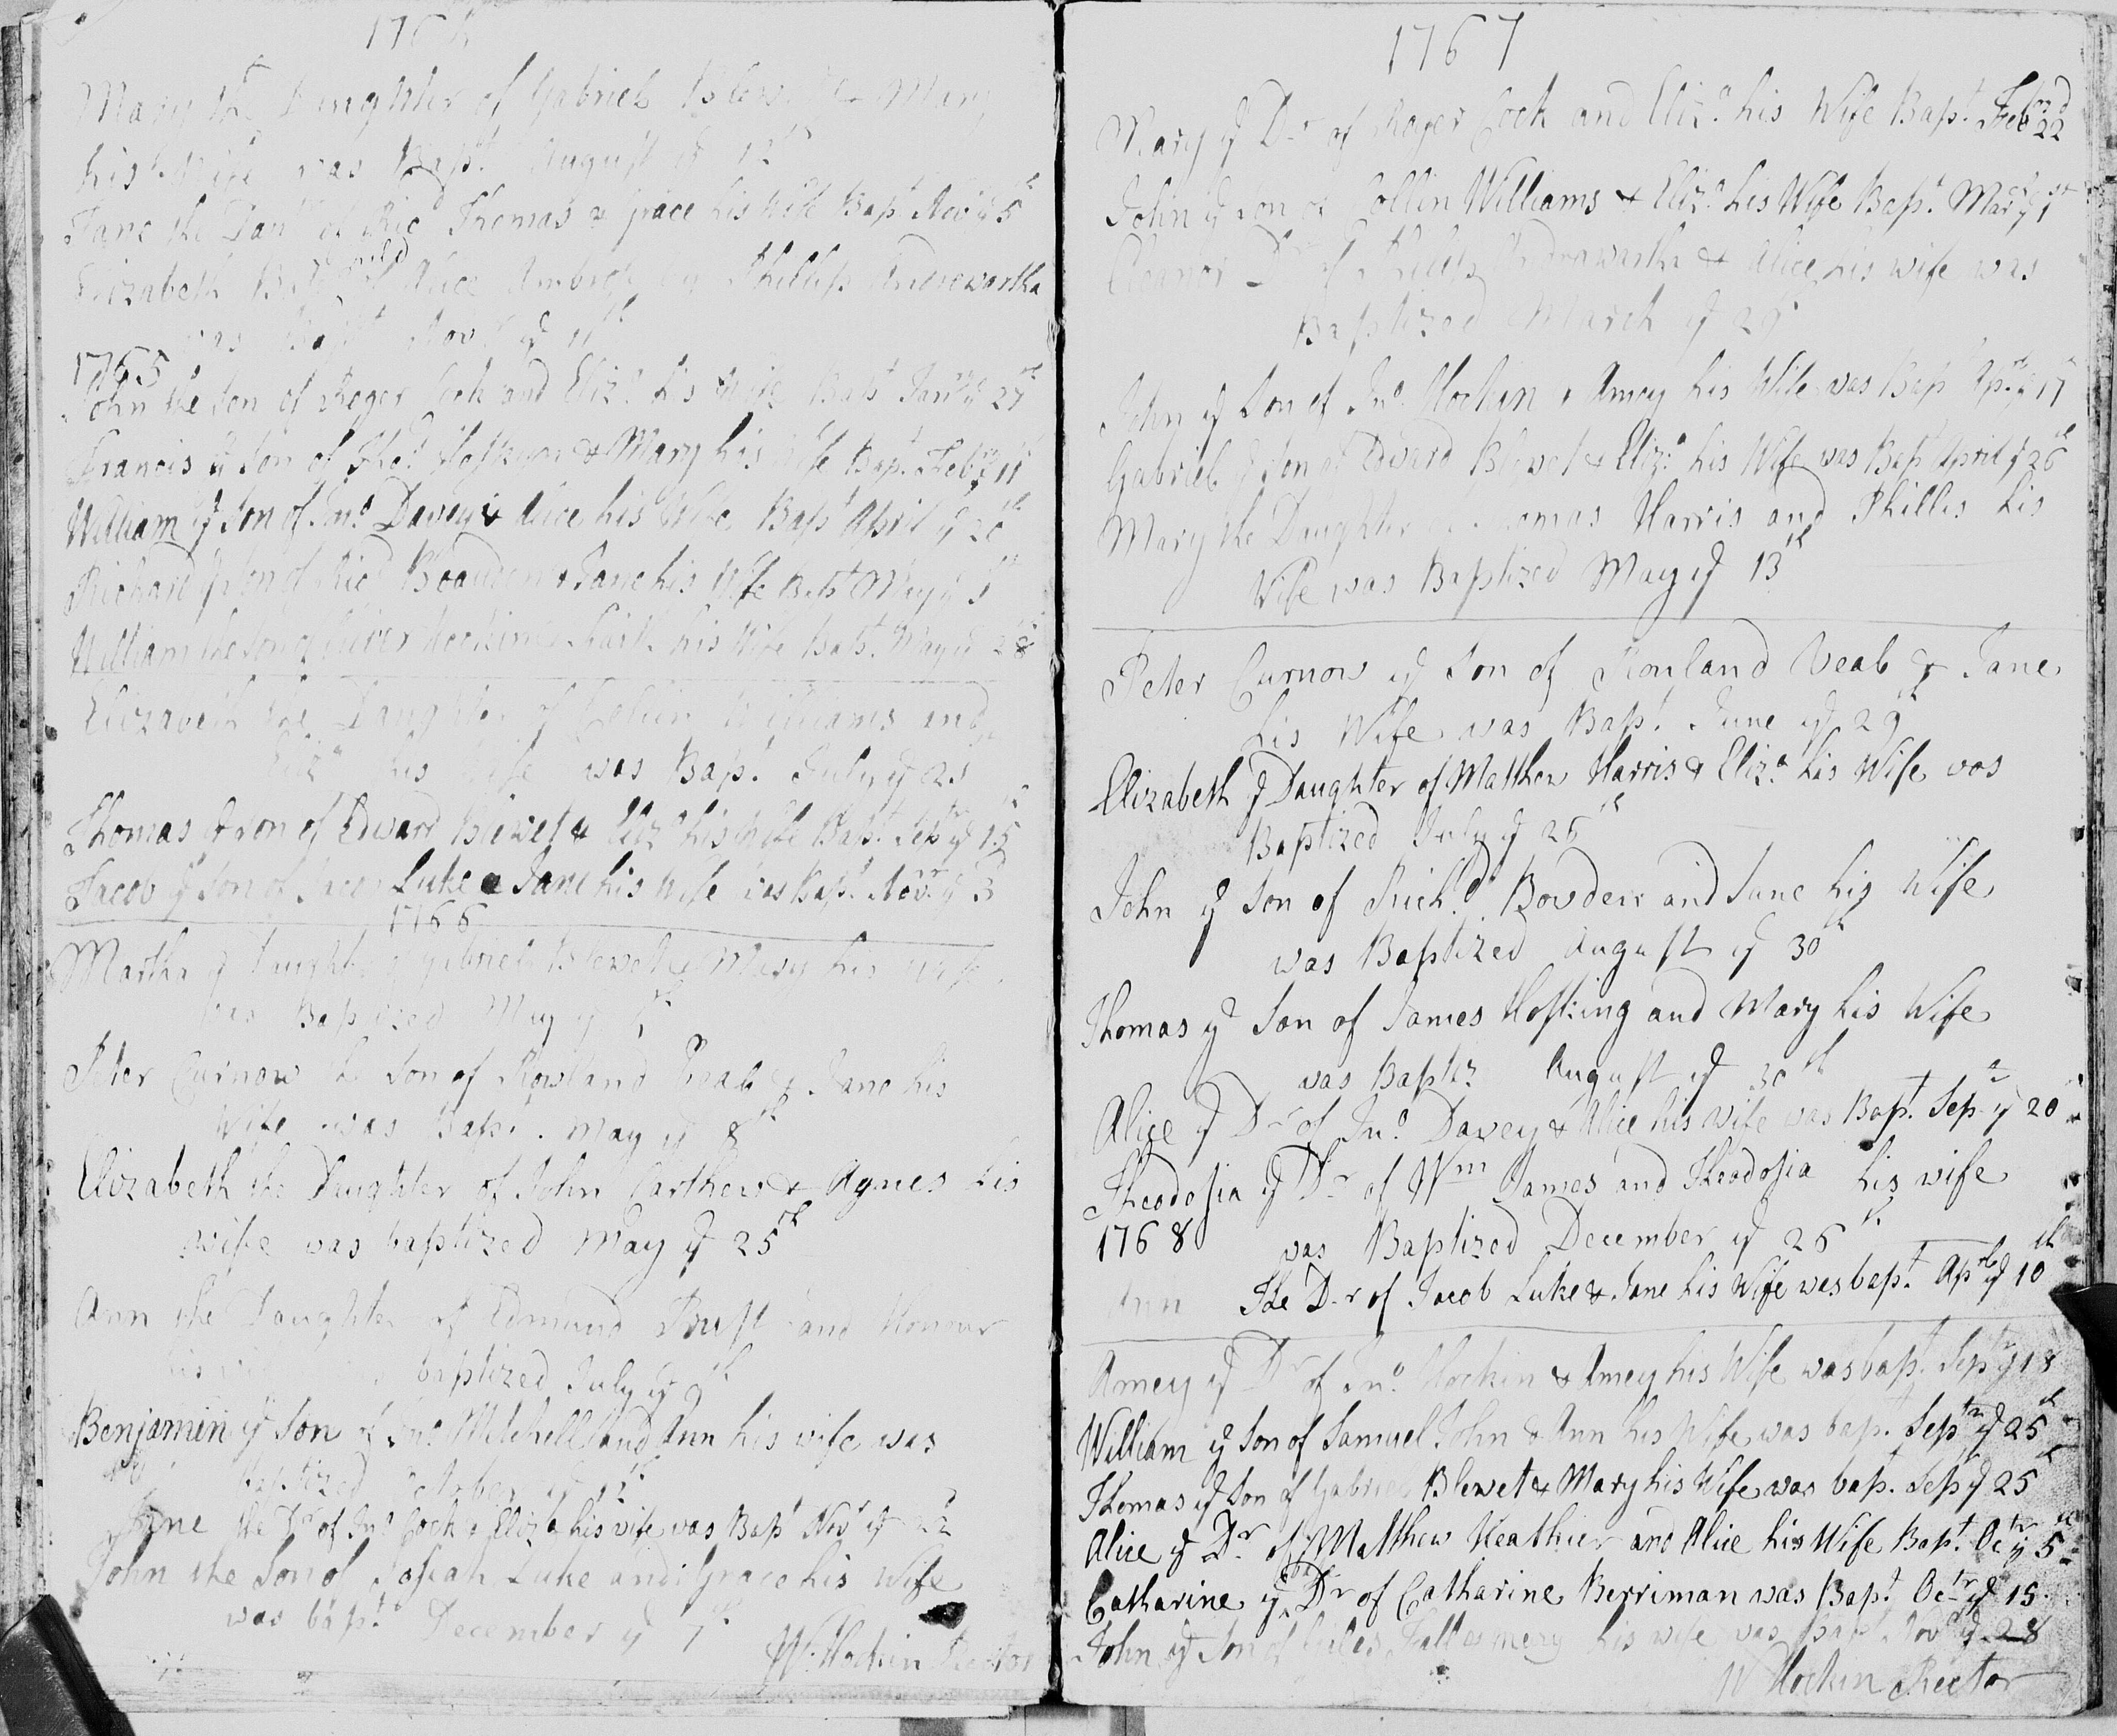 176
Mary the Daughter of Gabriel Blew & Mary
his Wife was Bapt. August ye 12th
Jane the Daur of Ricd Thomas & Grace his Wife Bapt Nov ye 5th
Elizabeth Child Alice Ambrose by Phillip Andrewartha
was Bapt Novr ye 11th
1765
John the Son of Roger Cock and Eliza his Wife Bapt Janry ye 27th
Francis ye Son of Thos Hoskyn & Mary his Wife Bapt. Febry 11th
William ye Son of Jno Davey & Alice his Wife Bapt April ye 20th
Richard ye Son of Ricd & Jane his Wife Bapt May ye
William the Son of his Wife Bapt. May ye 28th
Elizabeth the Daughter of Collin Williams and
Eliza his Wife was Bapt. July ye 21
Thomas ye Son of Edward Blewet & Eliza his Wife Bapt. Septr ye 15th
Jacob ye Son of Jacob Luke & Jane his Wife was Bapt. Novr ye 3d
1766
Martha ye Daughter of Gabriel Blewet & Mary his Wife
was Baptized May ye th
Peter Curnow the Son of Rowland Veab & Jane his
Wife was Bapt. May ye 8th
Elizabeth the Daughter of John Carthew & Agnes his
wife was baptized May ye 25th
Ann the Daughter of Edmund and Honour
his wife baptized July ye 9th
Benjamin ye Son of Jno Mitchell and Ann his wife was
baptized October ye 12th
Jane the Dr of Jno Cock & Eliza his wife was Bapt Novr ye 22
John the Son of Josiah Luke and Grace his Wife
was bapt. December ye 7th
W: Hockin Rector
1767
Mary ye Dr of Roger Cock and Eliza his Wife Bapt. Febry 22d
John ye Son of Collin Williams & Eliza his Wife Bapt. Mar ye 1st
Eleanor Dr of Phillip Andrawartha & Alice his wife was
Baptized March ye 25
John ye Son of Jno Hockin & Amey his Wife was Bap Aprl ye 17th
Gabriel ye Son of Edward Blewet & Eliza his Wife was Bapt April ye 26th
Mary the Daughter of Thomas Harris and Phillis his
Wife was Baptized May ye 13th
Peter Curnow ye Son of Rowland Veab & Jane
his Wife was Bapt. June ye 29th
Elizabeth ye Daughter of Matthew Harris & Eliza his Wife was
Baptized July ye 26th
John ye Son of Richd Bowden and Jane his Wife
was Baptized August ye 30th
Thomas ye Son of James Hosking and Mary his Wife
was Baptiz August ye 30th
Alice ye Dr of Jno Davey & Alice his wife was Bapt. Sepr ye 20
Theodosia ye Dr of Wm James and Theodosia his wife
1768 was Baptized December ye 26th
Ann The Dr of Jacob Luke & Jane his Wife was bapt. Aprl ye 10th
Amey ye Dr of Jno Hockin & Amey his Wife was bapt. Septr ye 18
William ye Son of Samuel John & Ann his Wife was bapt. Septr ye 25th
Thomas ye Son of Gabriel Blewet & Mary his Wife was bapt. Sep ye 25th
Alice ye Dr of Matthew and Alice his Wife Bapt. Octr ye 5th
Catharine ye Dr of Catharine Berriman was Bapt. Octr ye 15
John ye Son of his wife was bapt. Novr ye 28
W Hockin Rector